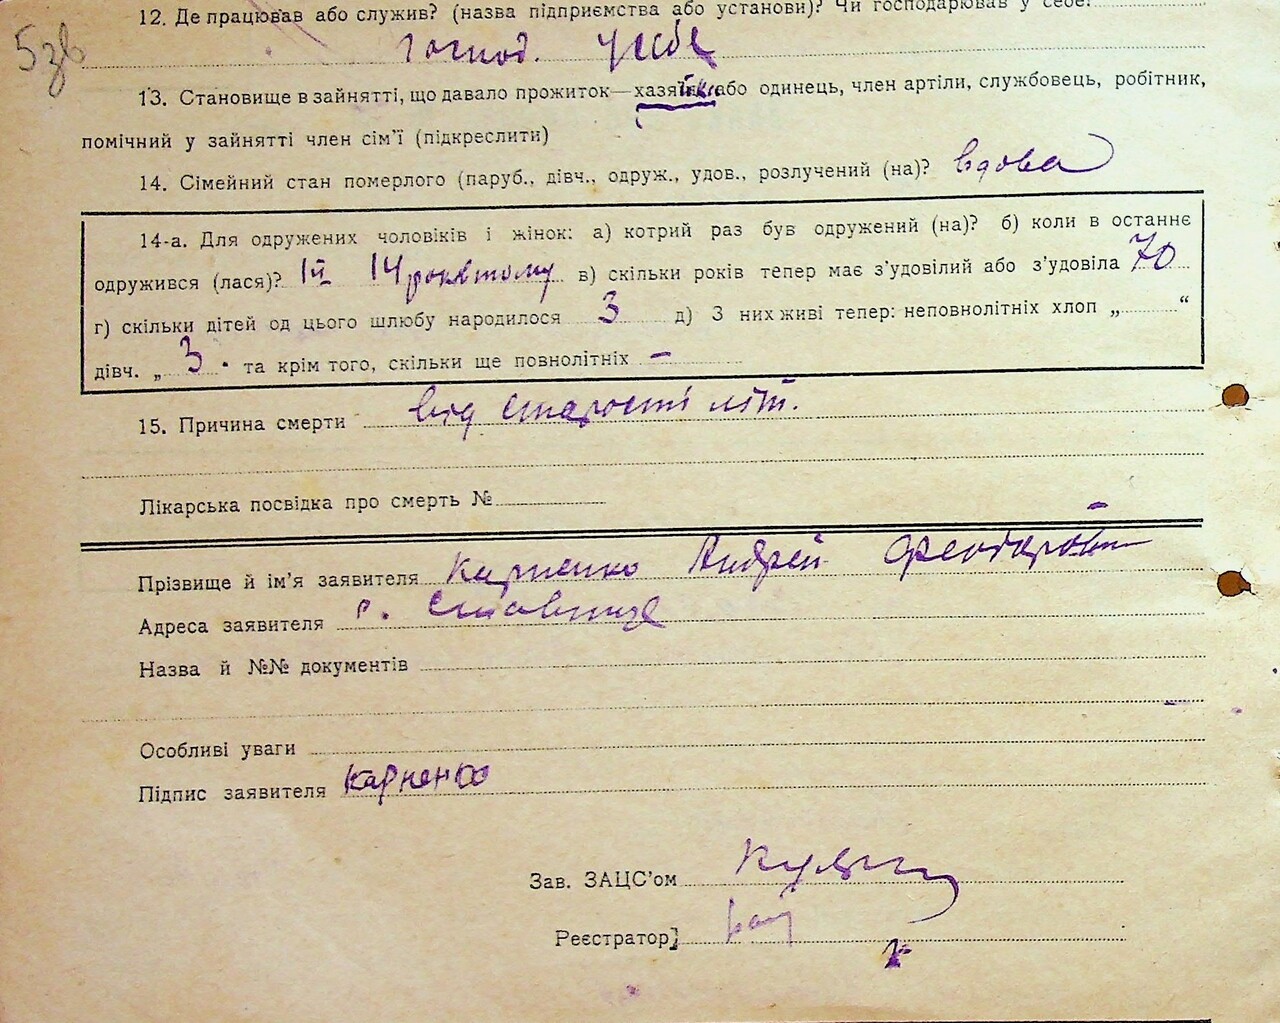 5зв
12. Де працював або служив? (назва підприємства або установи)? Чи господарював у себе?
господ. у себе
13. Становище в зайнятті, що давало прожиток—хазяйка або одинець, член артіли, службовець, робітник,
помічний у зайнятті член сім'ї (підкреслити)
14. Сімейний стан померлого (паруб., дівч., одруж., удов., розлучений (на)? вдова
14-а. Для одружених чоловіків і жінок: а) котрий раз був одружений (на)? б) коли в останнє
одружився (лася)? Iй 14 рок в тому в) скільки років тепер має з'удовілий або з'удовіла 70
г) скільки дітей од цього шлюбу народилося 3 д) З них живі тепер: неповнолітніх хлоп „ “
дівч. „ 3. та крім того, скільки ще повнолітніх —
15. Причина смерти від старості літ.
Лікарська посвідка про смерть №
Прізвище й ім'я заявителя Карпенко Андрей Феодорович
Адреса заявителя с. Ставище
Назва й №№ документів
Особливі уваги
Підпис заявителя Карпенко
Зав. ЗАЦС'ом
Реєстратор